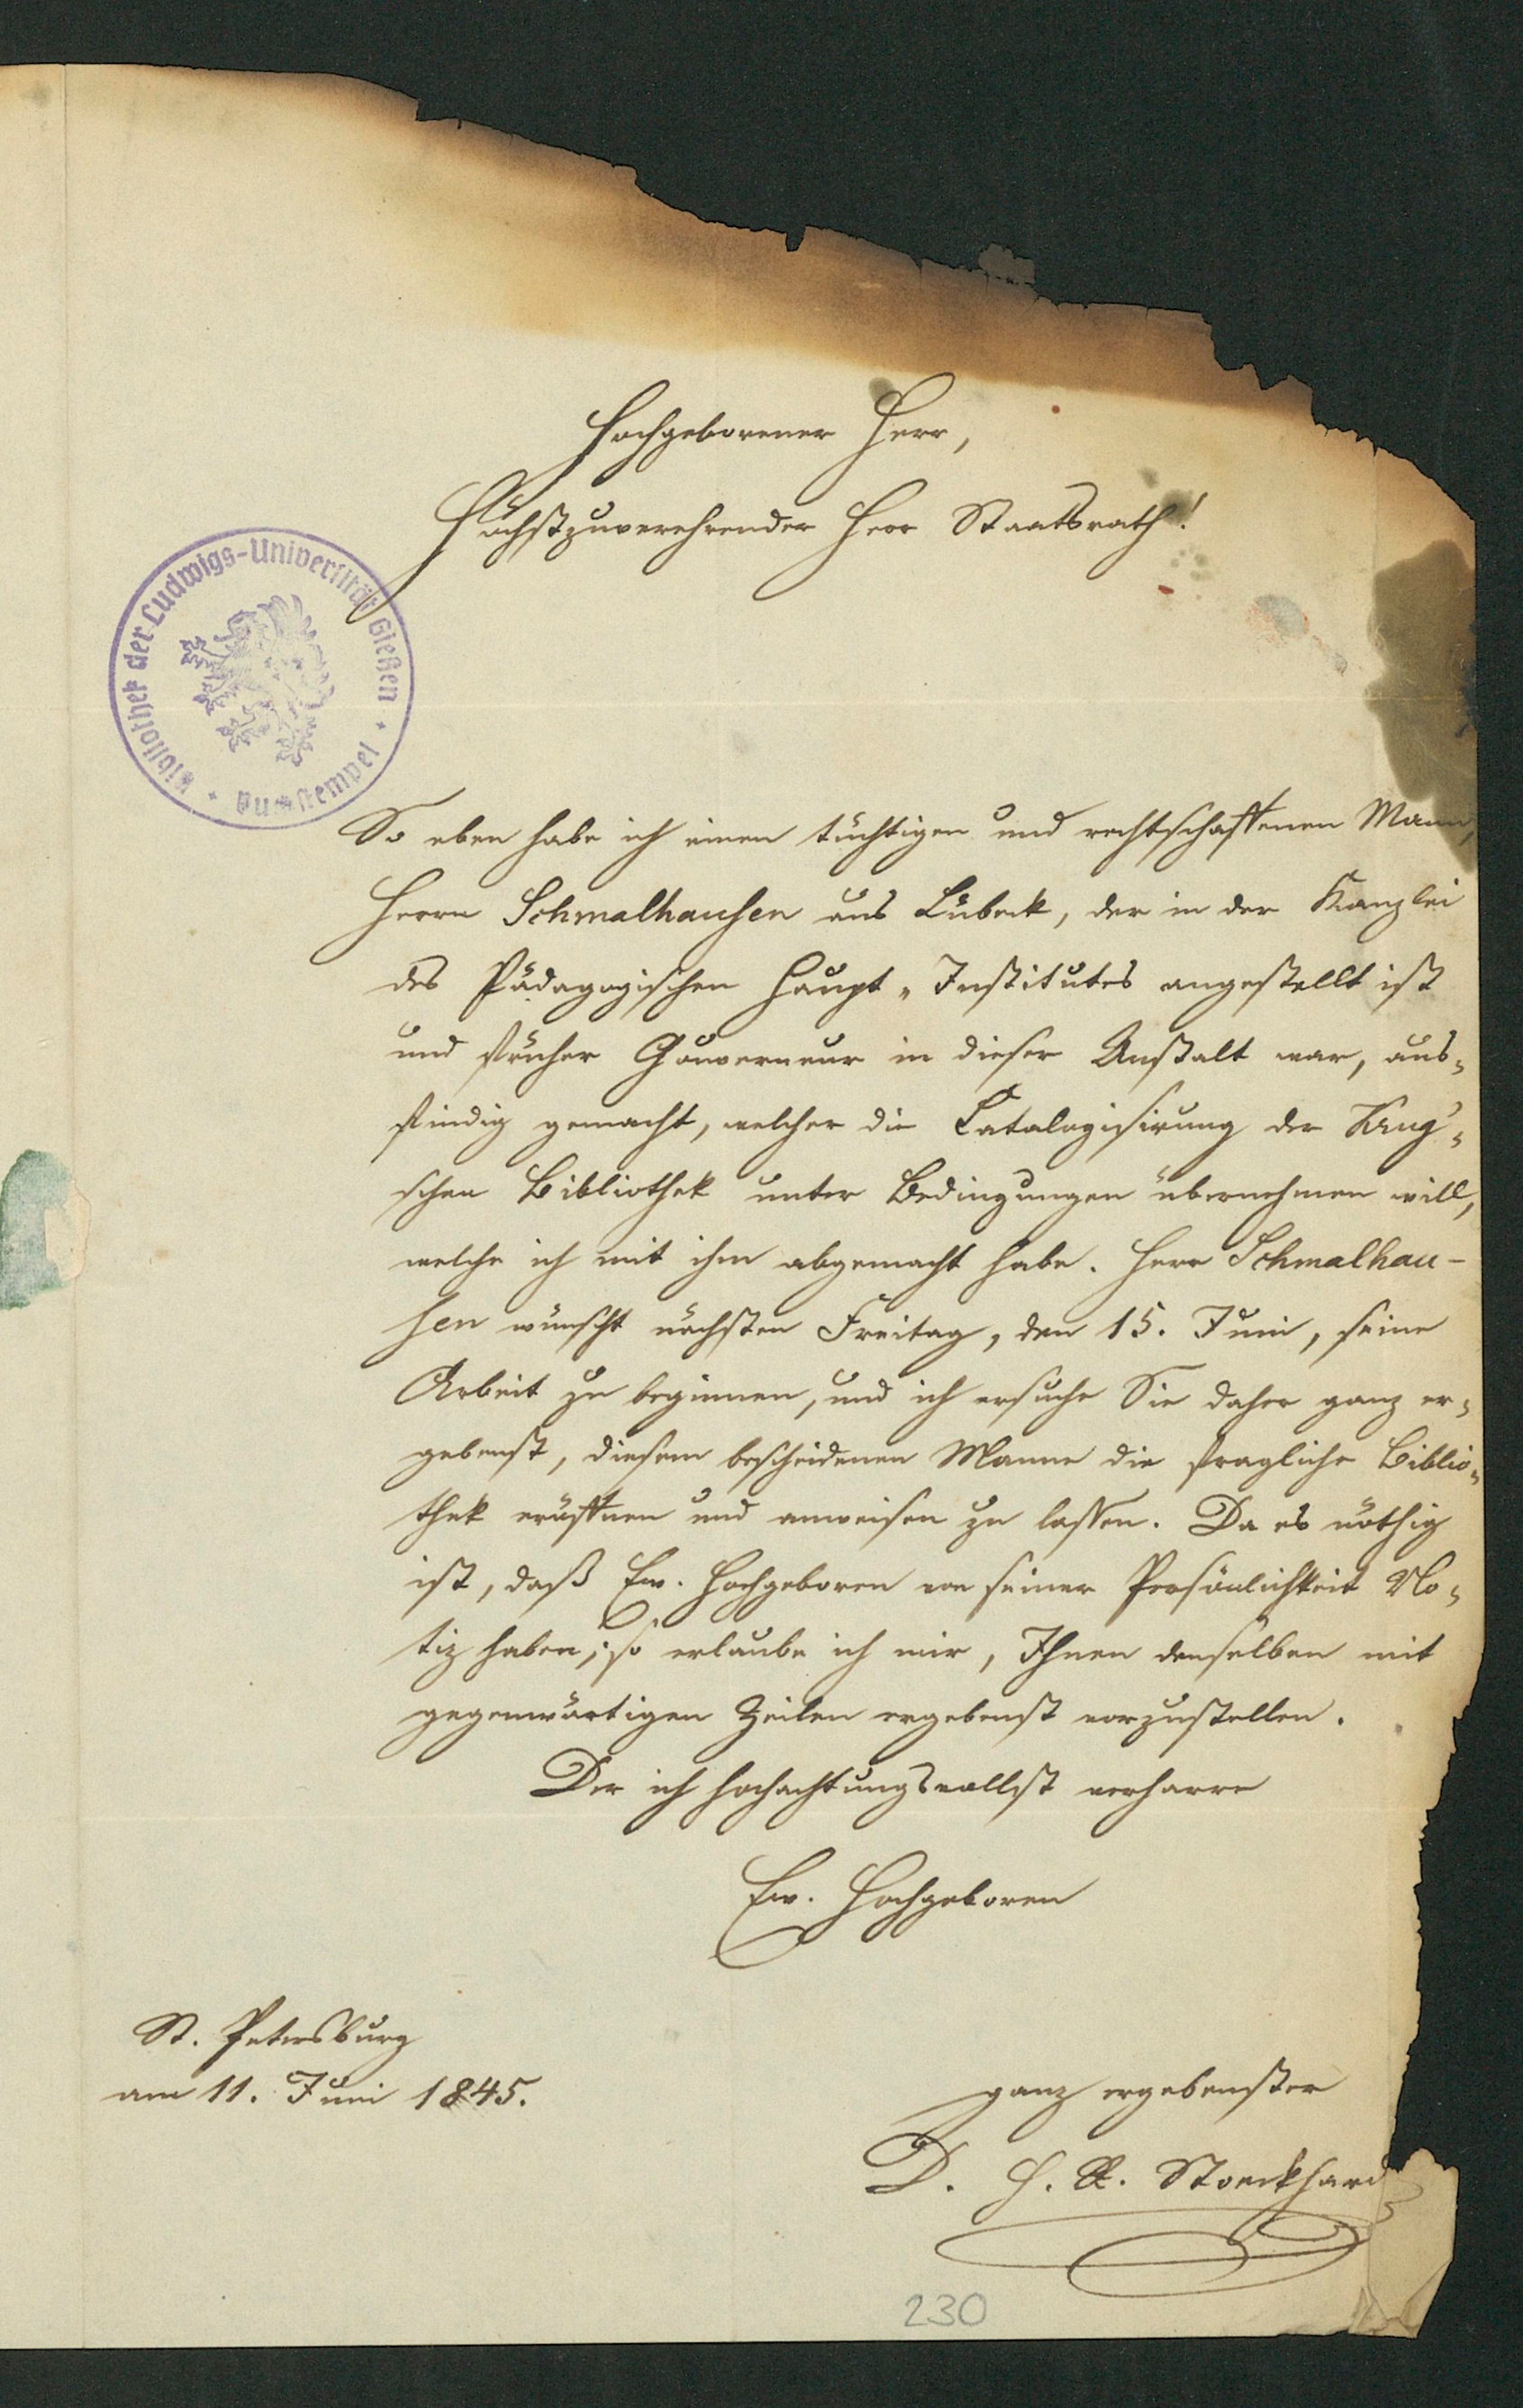 Hochgeborener Herr,
Höchstzuverehrender Herr Staatsrath!
Bibliothek der Ludwigs-Universität Gießen
So eben habe ich einen tüchtigen und rechtschaffenen Mann,
Herrn Schmalhausen aus Lübeck, der in der Kanzlei
des Pädagogischen Haupt-Institutes angestellt ist
und früher Gouverneur in dieser Anstalt war, aus-
findig gemacht, welcher die Catalogisirung der Krug'-
schen Bibliothek unter Bedingungen übernehmen will,
welche ich mit ihm abgemacht habe. Herr Schmalhau-
sen wünscht nächsten Freitag, den 15. Juni, seine
Arbeit zu beginnen, und ich ersuche Sie daher ganz er-
gebenst, diesem bescheidenen Manne die fragliche Biblio-
thek eröffnen und anweisen zu lassen. Da es nöthig
ist, daß Ew. Hochgeboren von seiner Persönlichkeit No-
tiz haben; so erlaube ich mir, Ihnen denselben mit
gegenwärtigen Zeilen ergebenst vorzustellen.
Der ich hochachtungsvollst verharre
Ew. Hochgeboren
St. Petersburg
am 11. Juni 1845.
ganz ergebenster
D. H. R. Stoeckhard
230